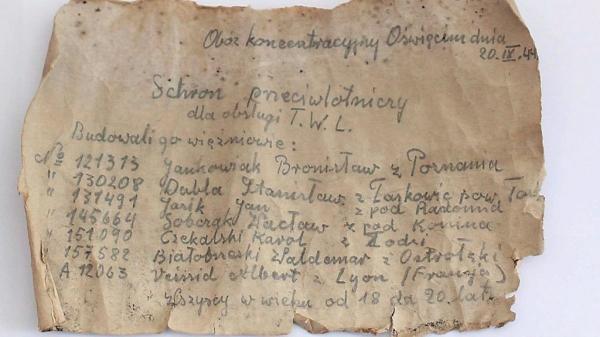 Obóz koncentracyjny Oświęcim dnia
20.IX.44.
Schron przeciwlotniczy
dla obsługi T.W.L.
Budowali go więźniowie:
No 121313 Jankowiak Bronisław z Poznania
" 130208 Dubla Stanisław z Łaskowic pow.
" 131491 Jasik Jan z pod Radomia
" 145664 Sobczak Wacław z pod Konina
" 151090 Czekalski Karol z Łodzi
" 157582 Białobrzeski Waldemar z Ostrołęki
A 12063 Veisid Albert z Lyon (Francja)
Wszyscy w wieku od 18 do 20 lat.